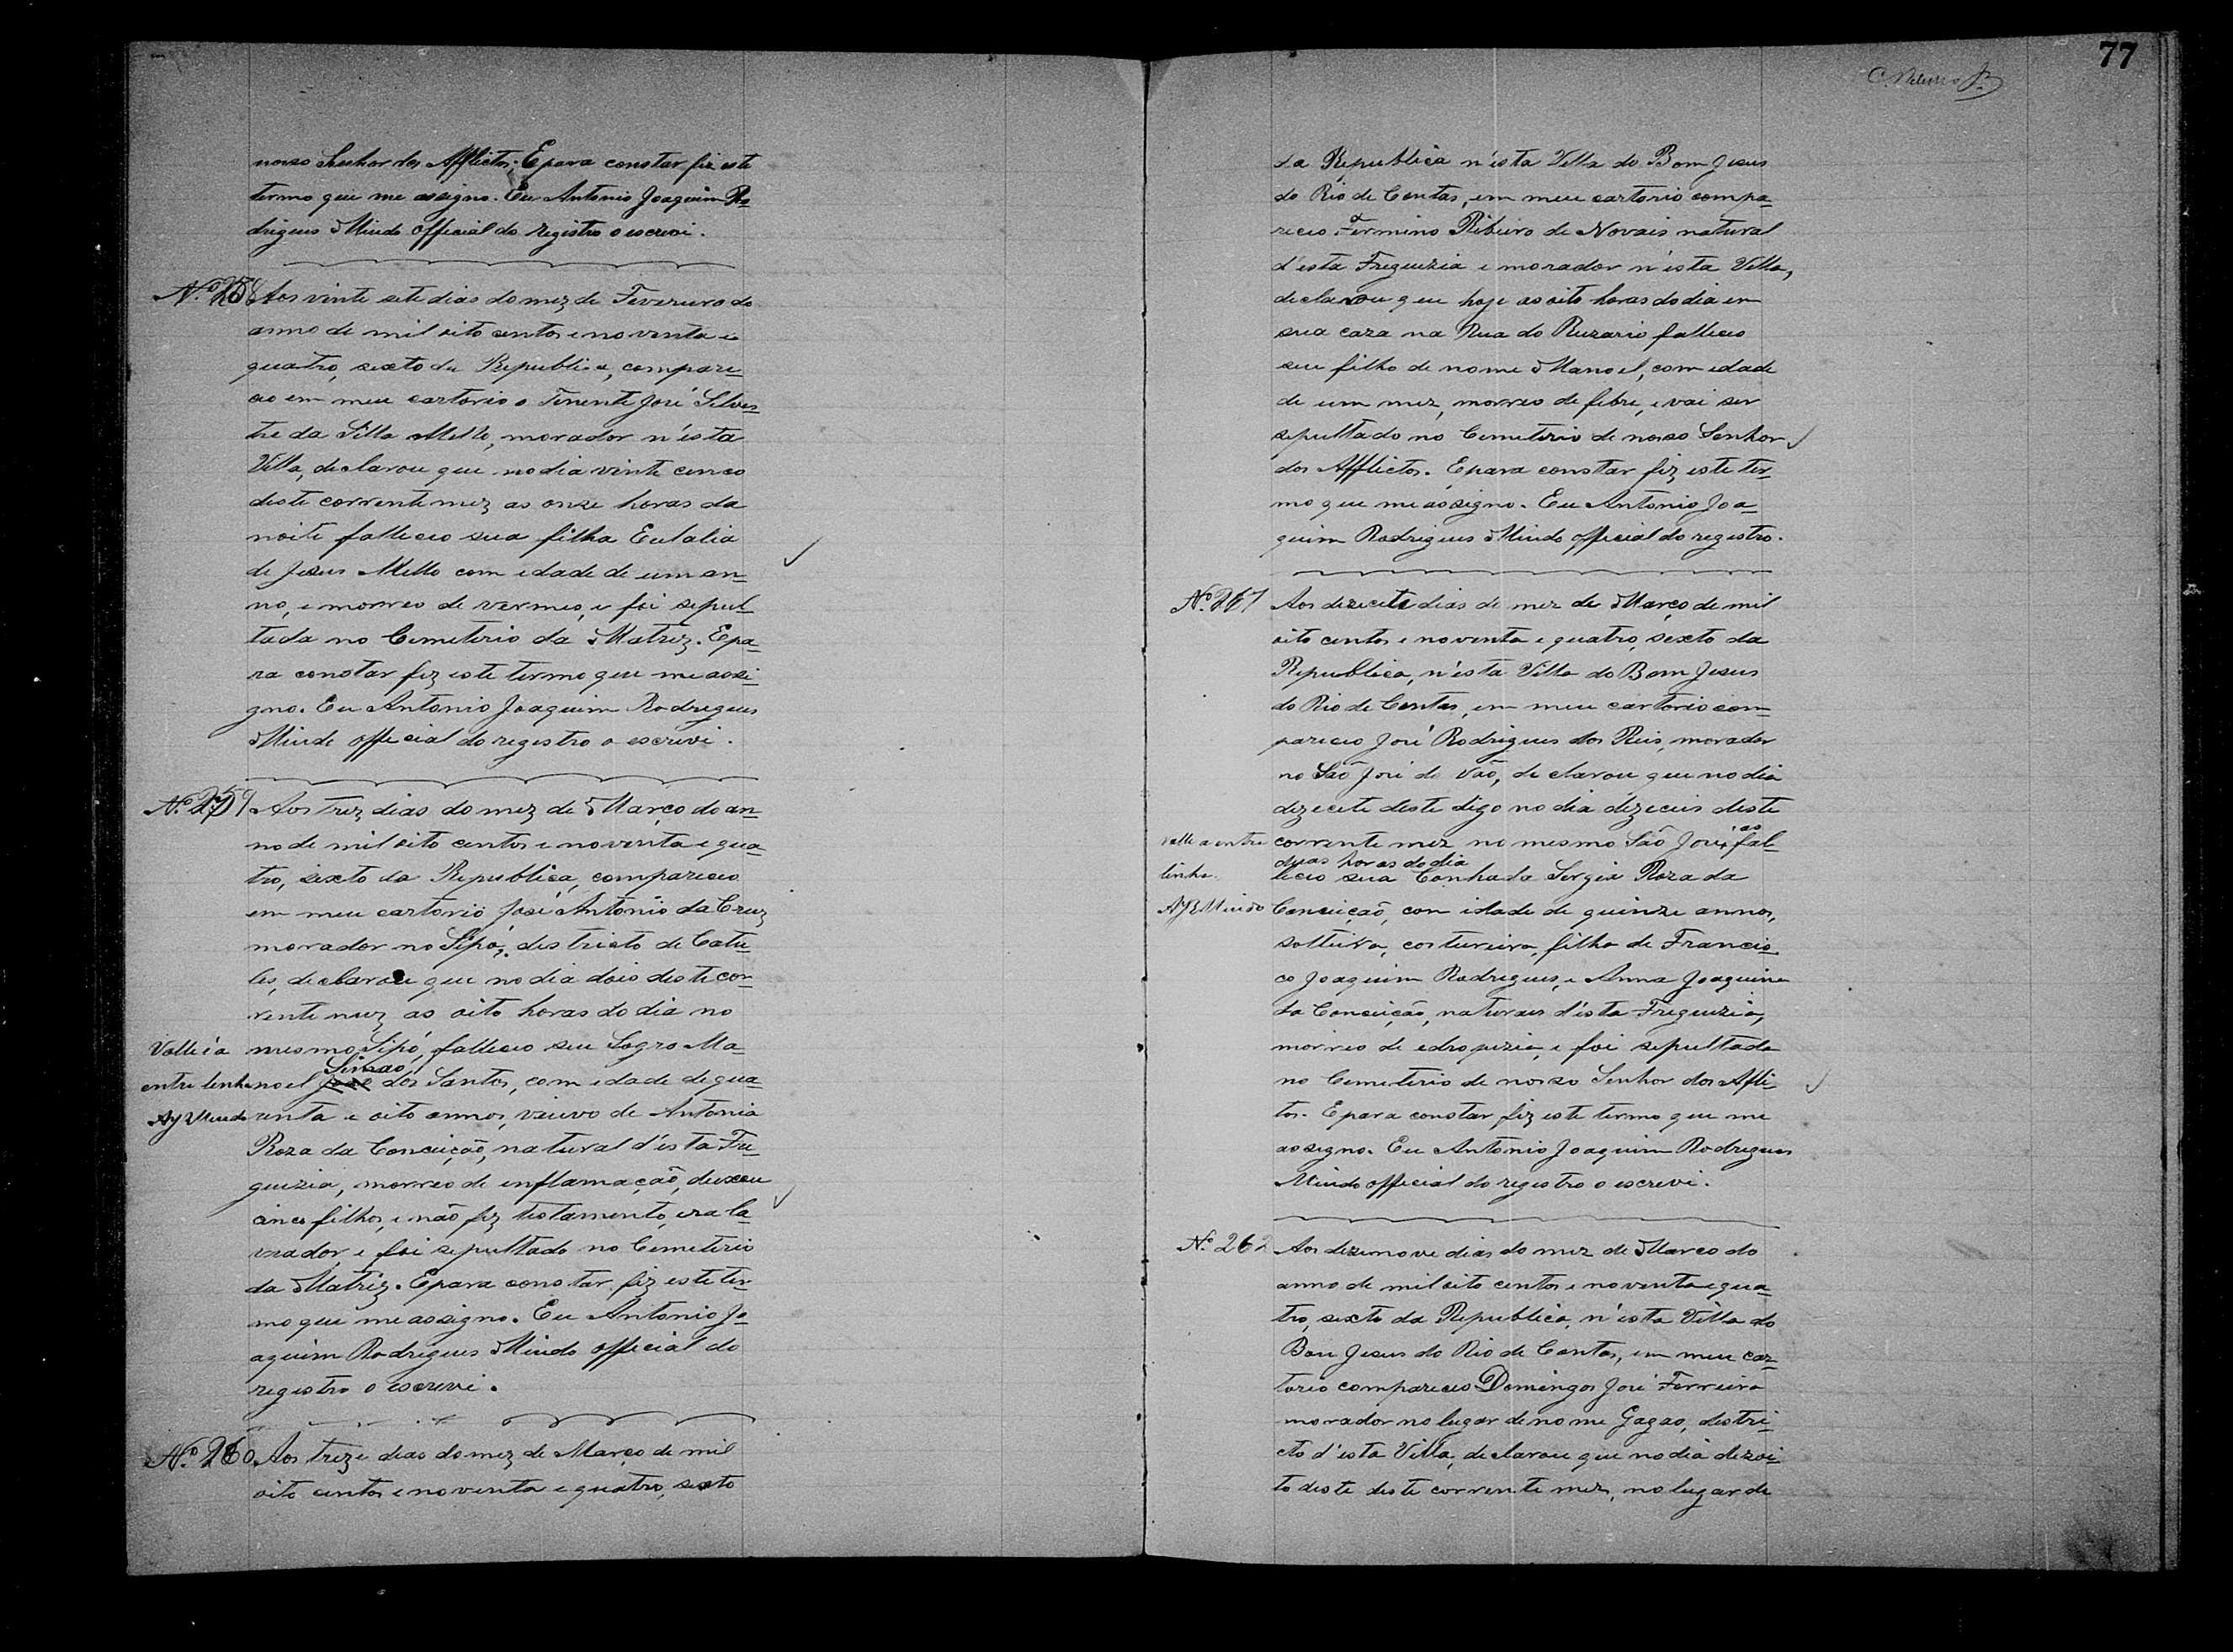 nosso Senhor dos Afflictos. E para constar fiz este
termo que me assigno. Eu Antonio Joaquim Ro-
drigues Miudo official do registro o escrevi.
Nº 258 Aos vinte sete dias do mez de Fevereiro do
anno de mil oito centos e noventa e
quatro, sexto da Republica, compare-
ceo em meu cartorio o Tenente José Silves-
tre da Silva Mello, morador n'esta
Villa, declarou que no dia vinte cinco
deste corrente mez as onze horas da
noite falleceo sua filha Eulalia
de Jesus Mello com idade de um an-
no, e morreo de vermes, e foi sepul-
tada no Cemeterio da Matriz. E pa-
ra constar fiz este termo que me assi-
gno. Eu Antonio Joaquim Rodrigues
Miudo official do registro o escrevi.
Nº 259 Aos trez dias do mez de Março do an-
no de mil oito centos e noventa e qua-
tro, sexto da Republica, compareceo
em meu cartorio José Antonio da Cruz
morador no Sipó, destricto de Catu-
les, declarou que no dia dois deste cor-
rente mez as oito horas do dia no
Valle a mesmo Sipó, falleceo seu Sogro Ma-
Simão
entre linha noel José dos Santos, com idade de qua-
AJRMiudo renta e oito annos, viuvo de Antonia
Roza da Conceição, natural d'esta Fre-
guizia, morreo de enflamação, deixou
cinco filhos, e não fez testamento, era la-
vrador, e foi sepultado no Cemeterio
da Matriz. E para constar fiz este ter-
mo que me assigno. Eu Antonio Jo-
aquim Rodrigues Miudo official do
registro o escrevi.
Nº 260 Aos treze dias do mez de Março de mil
oito centos e noventa e quatro, sexto
77
da Republica n'esta Villa do Bom Jesus
do Rio de Contas, em meu cartorio compa-
receo Fermino Ribeiro de Novais natural
d'esta Freguizia e morador n'esta Villa,
declarou que hoje as oito horas do dia em
sua caza na Rua do Ruzario falleceo
seu filho de nome Manoel, com edade
de um mez, morreo de febre, e vai ser
sepultado no Cemeterio de nosso Senhor
dos Afflictos. E para constar fiz este ter-
mo que me assigno. Eu Antonio Joa-
quim Rodrigues Miudo official do registro.
Nº 261 Aos dezecete dias do mez de Março de mil
oito centos e noventa e quatro, sexto da
Republica, n'esta Villa do Bom Jesus
do Rio de Contas, em meu cartorio com-
pareceo José Rodrigues dos Reis, morador
no São José do Vão, declarou que no dia
dezecete deste digo no dia dezeceis deste
as
valle a entre corrente mez no mesmo São José, fal-
duas horas do dia
linha. leceo sua Conhada Sergia Roza da
AJRMiudo Conceição, com idade de quinze annos,
solteira, costureira, filha de Francis-
co Joaquim Rodrigues, e Anna Joaquina
da Conceição, naturaes d'esta Freguizia,
morreo de edropezia, e foi sepultada
no Cemeterio de nosso Senhor dos Afli-
tos. E para constar fiz este termo que me
assigno. Eu Antonio Joaquim Rodrigues
Miudo official do registro o escrevi.
Nº 262 Aos dezenove dias do mez de Março do
anno de mil oito centos e noventa e qua-
tro, sexto da Republica, n'esta Villa do
Bom Jesus do Rio de Contas, em meu car-
torio compareceo Domingos José Ferreira
morador no lugar de nome Gagao, destri-
cto d'esta Villa, declarou que no dia dezoi-
to deste deste corrente mez, no lugar de